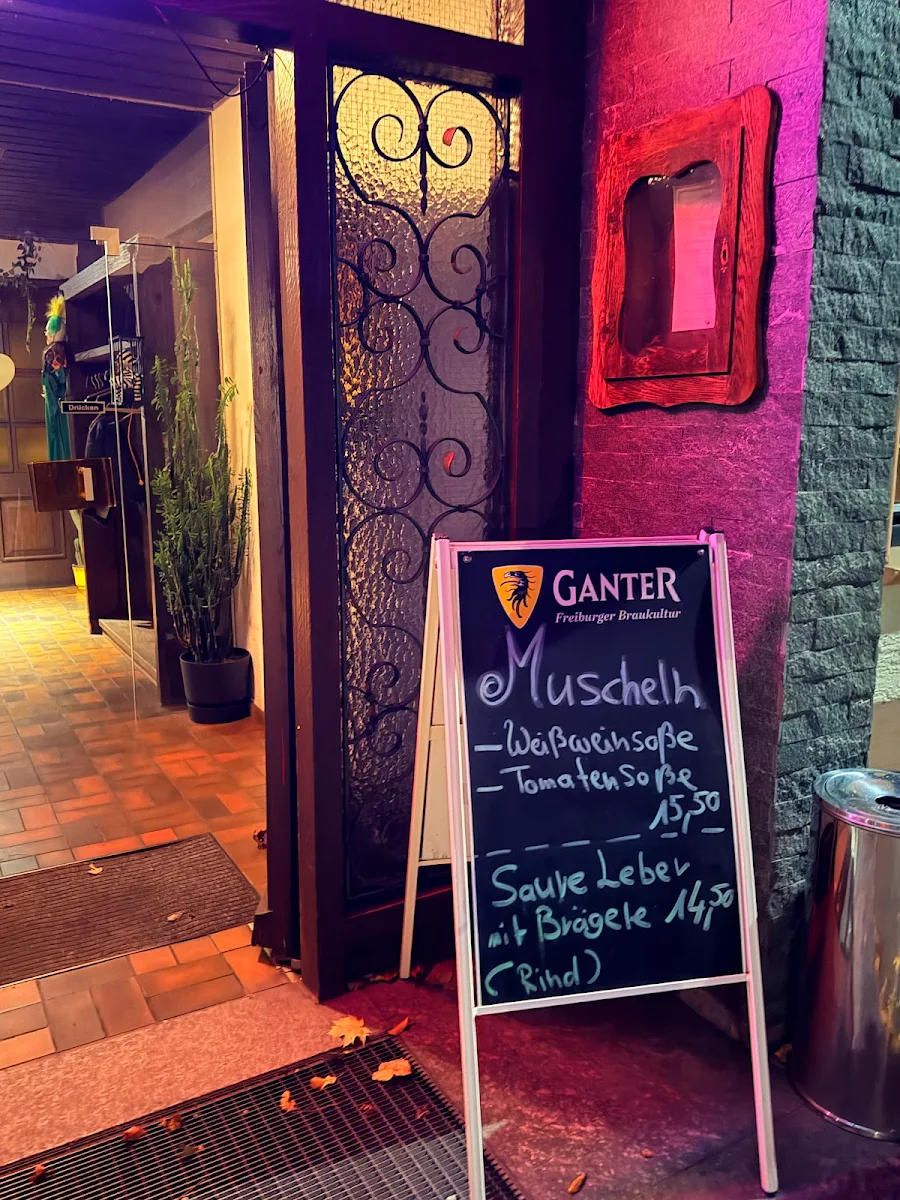 Drücken
GANTER
Freiburger Braukultur
Muscheln
– Weißweinsoße
– Tomatensoße
15,50
Saure Leber
mit Brägele 14,50
(Rind)